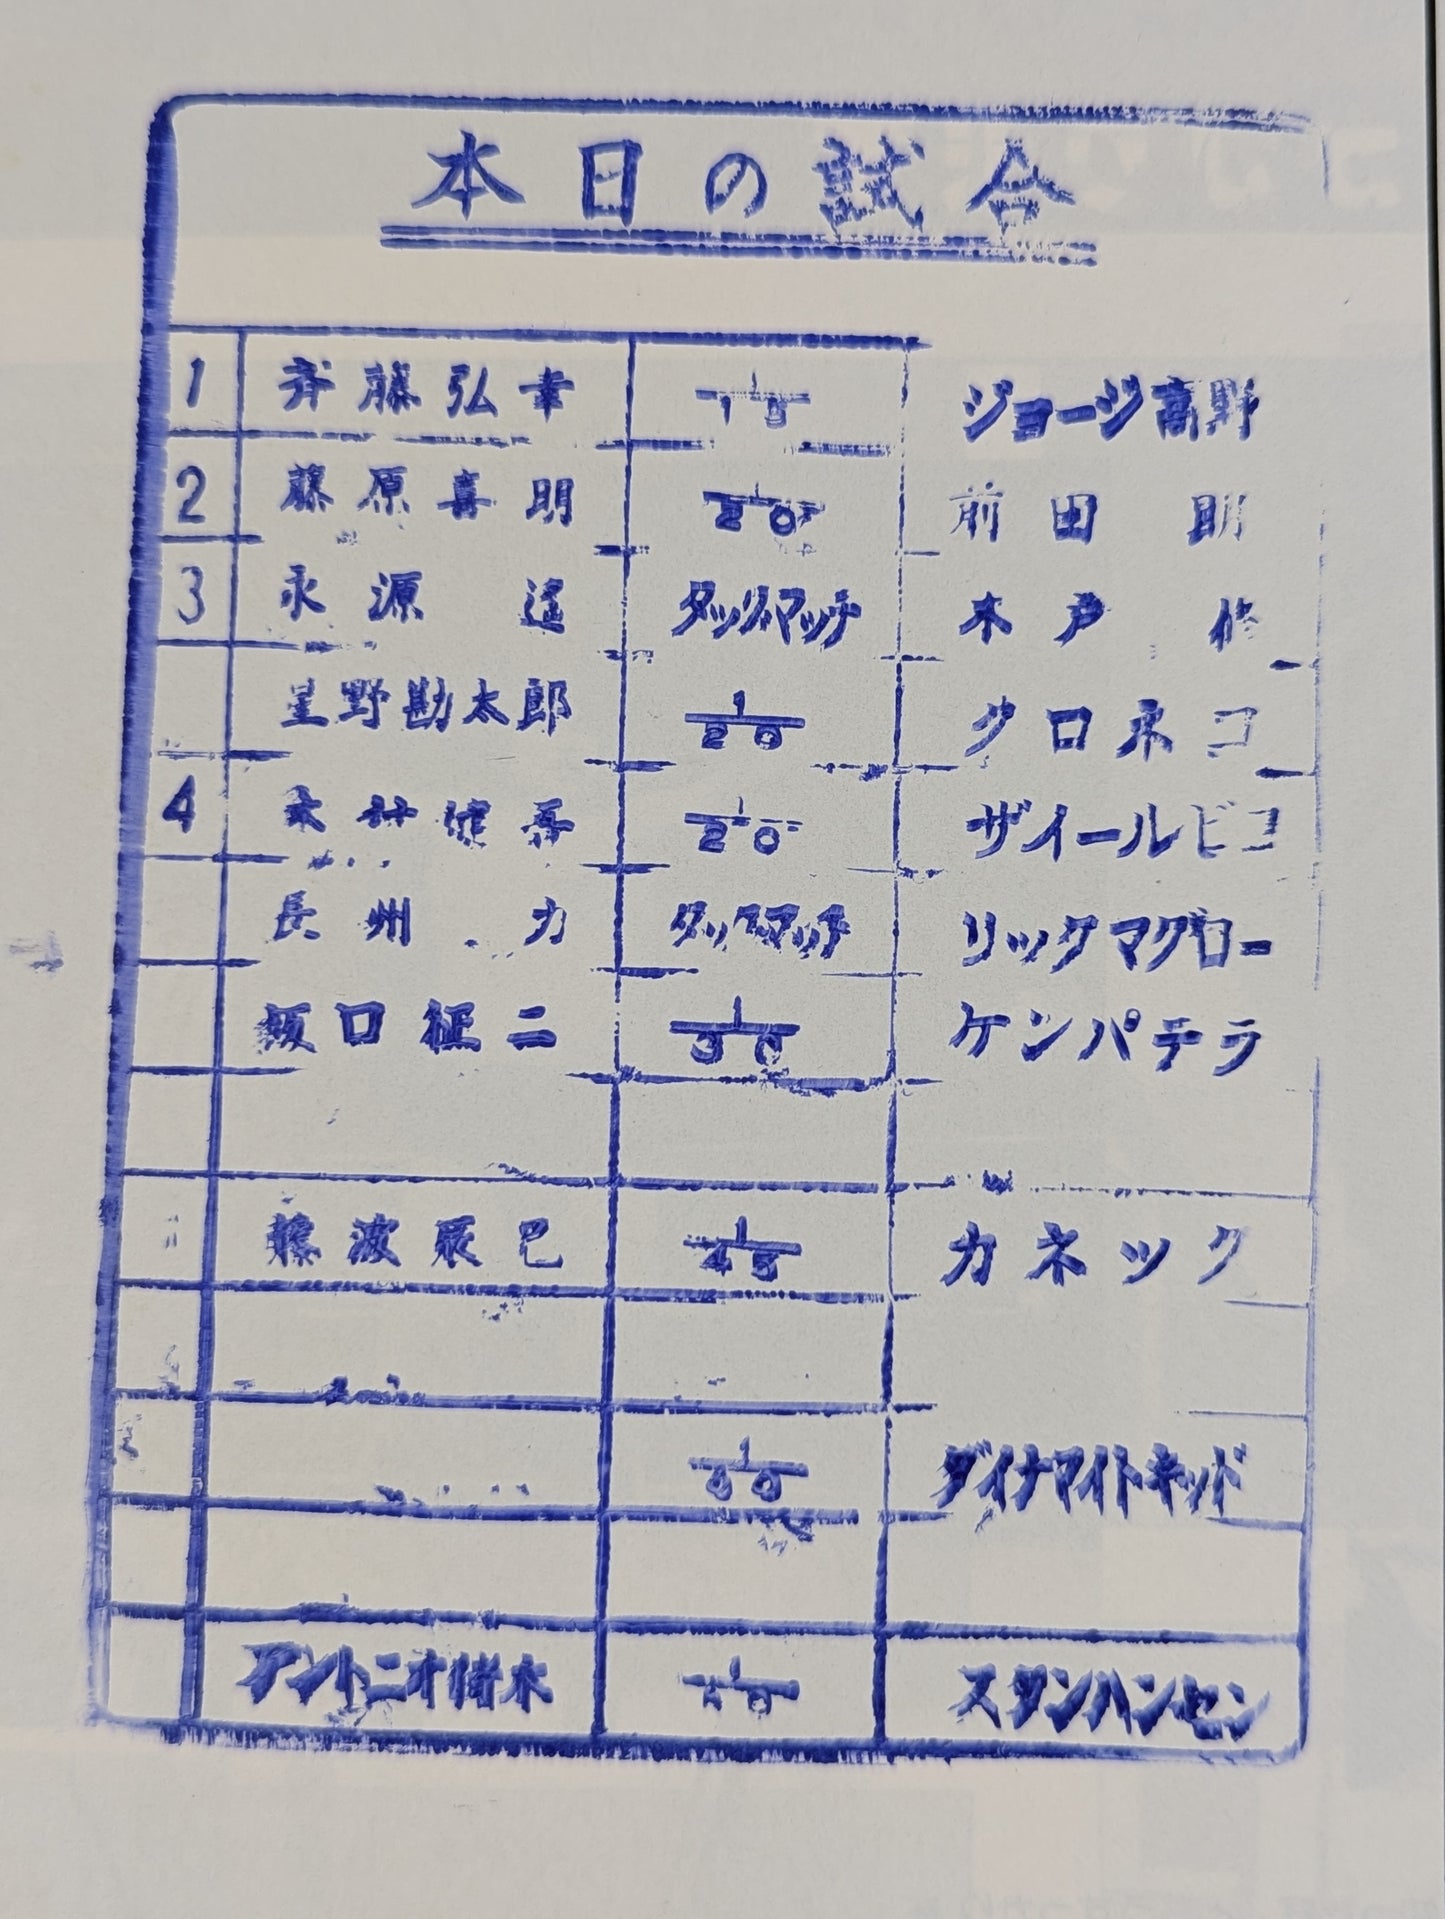 本日の試合
1 斉藤弘幸 1/15 ジョージ高野
2 藤原喜明 1/20 前田明
3 永源遙 タッグマッチ 木戸修
星野勘太郎 1/20 クロネコ
4 木村健吾 1/20 ザイールビコ
長州力 タッグマッチ リックマグロー
坂口征二 1/30 ケンパテラ
藤波辰巳 1/45 カネック
ダイナマイトキッド
アントニオ猪木 スタンハンセン